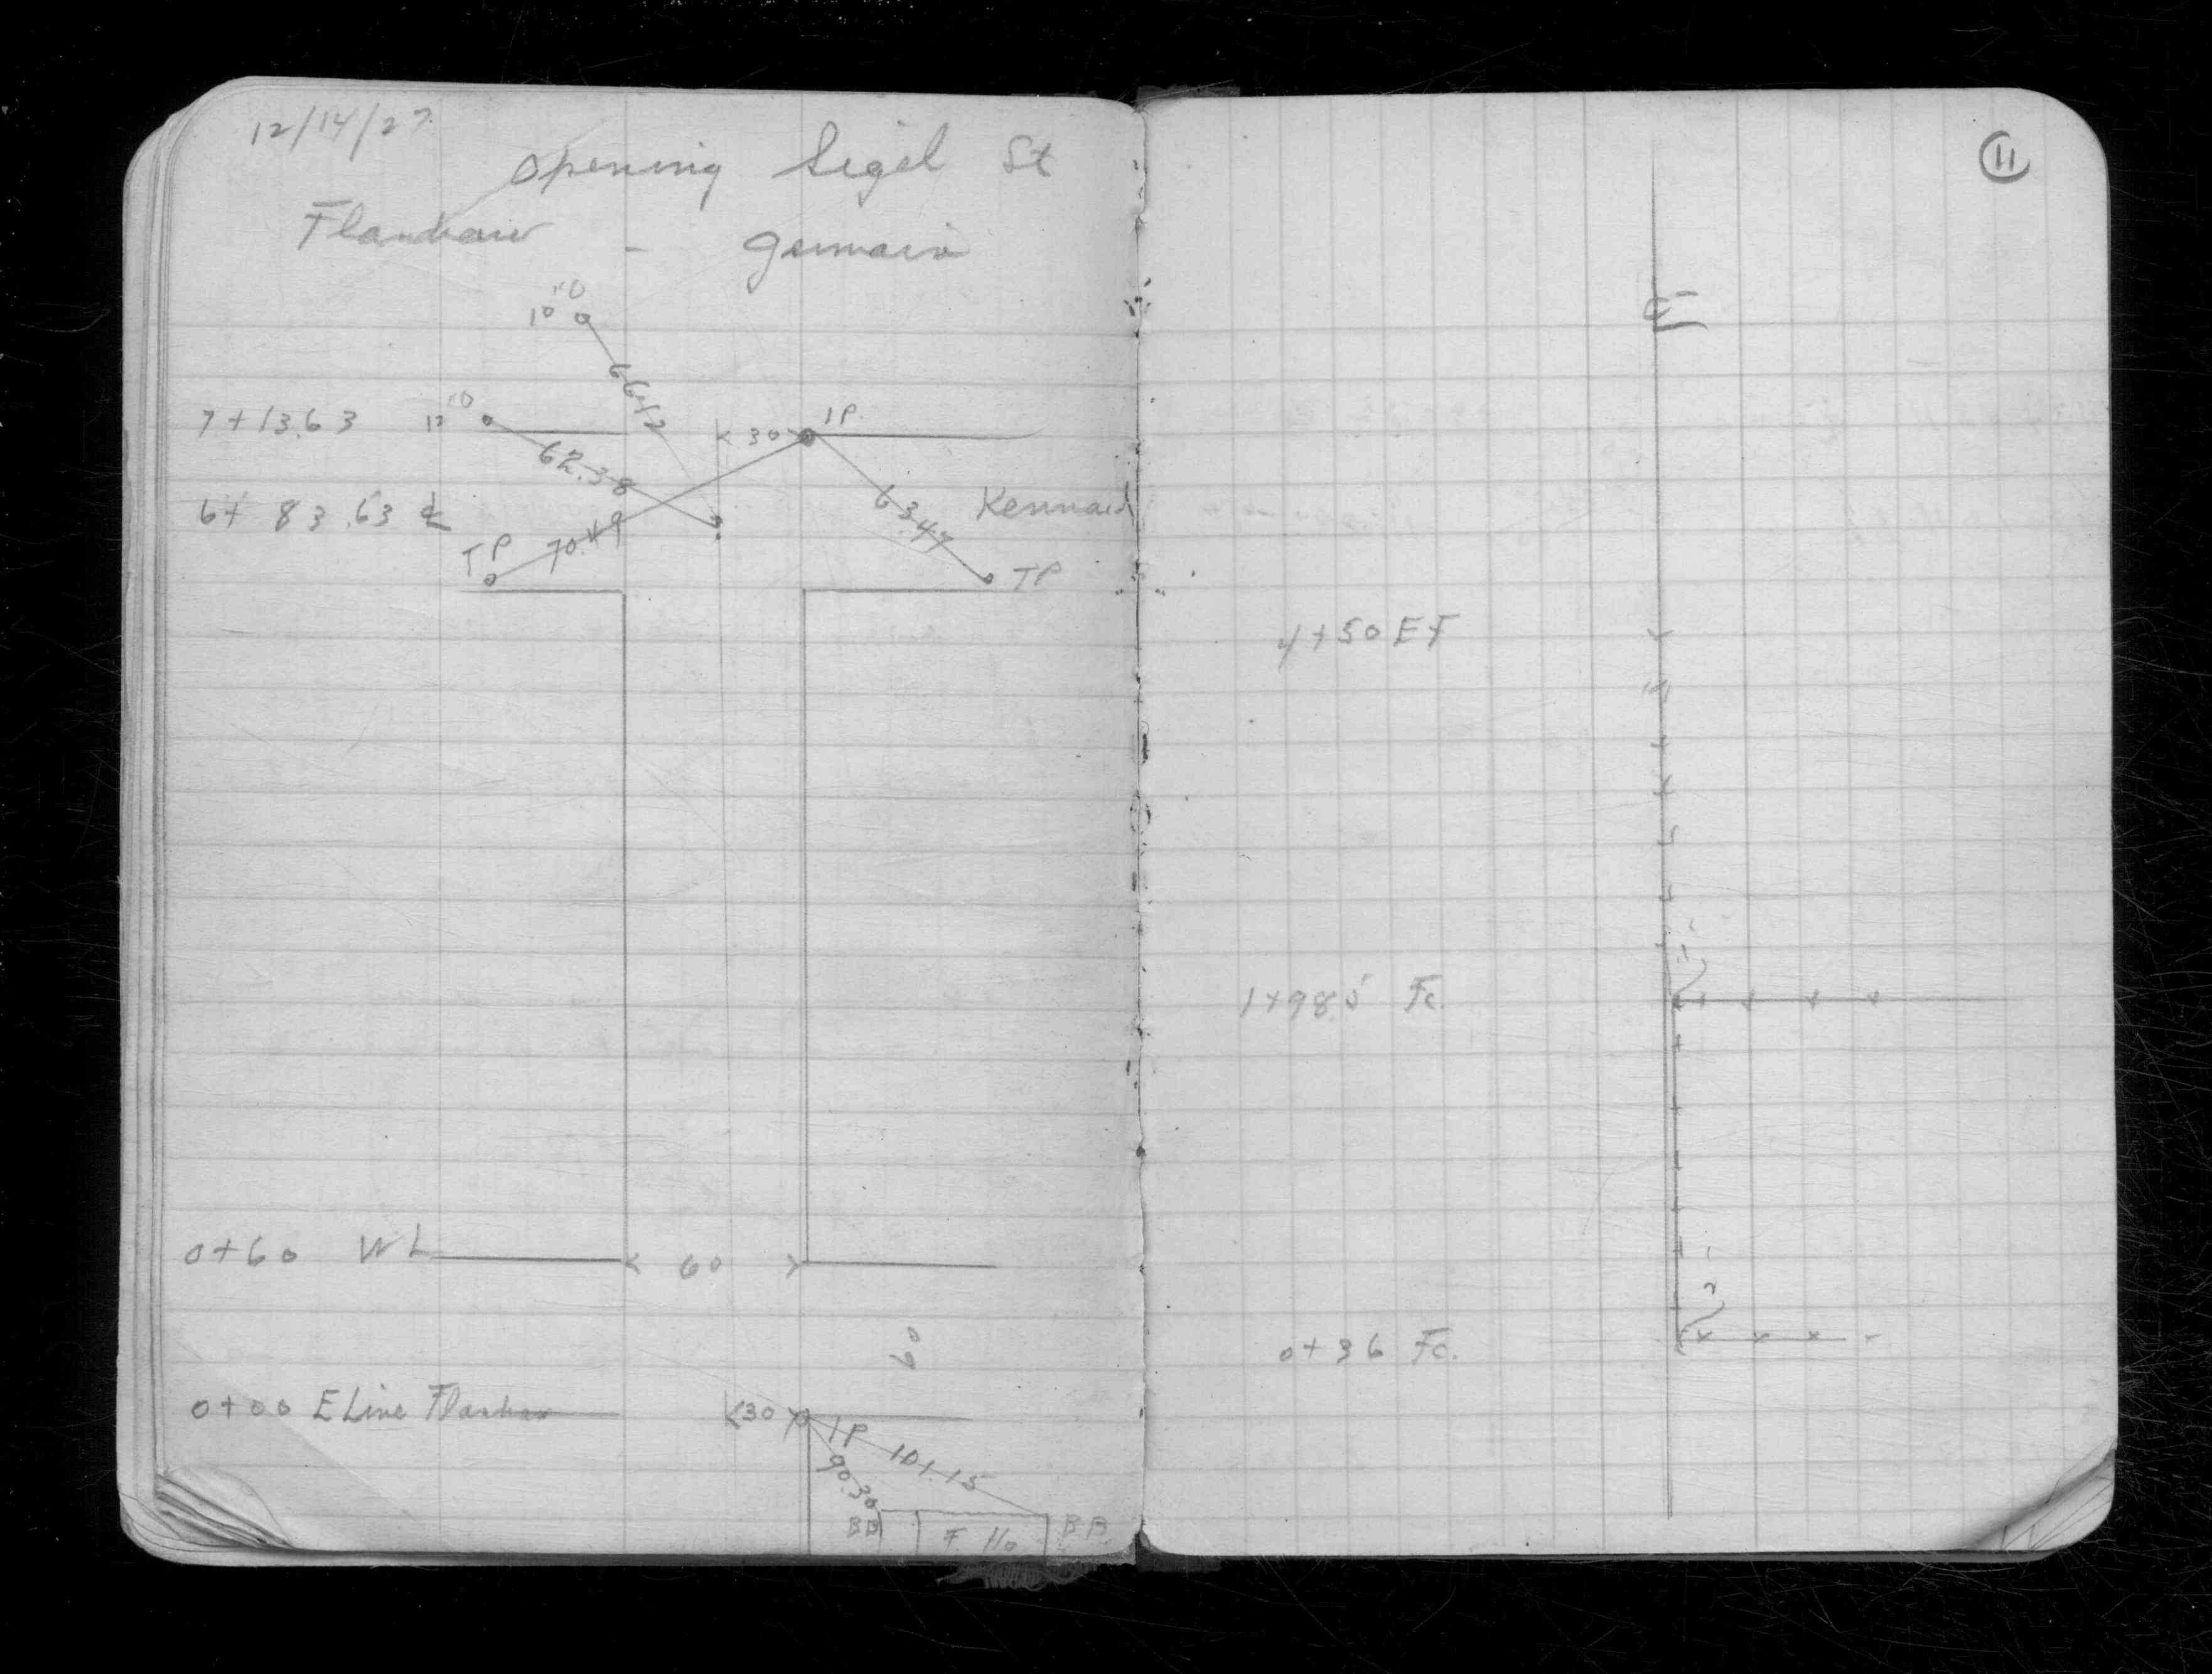 12/14/27
Opening Sigel St
Flandrau - Germain
10"O
66.42
7+13.63 12"O <30> IP.
62.38
6+83.63 ℄ 63.47 Kennard
TP 70.49 TP
0+60 WL < 60 >
60
0+00 E Line Flandrau <30> IP 101.15
90.30
BB F. Ho BB.
11
℄
4+50 EF
1+98.5 Fc.
0+36 Fc.